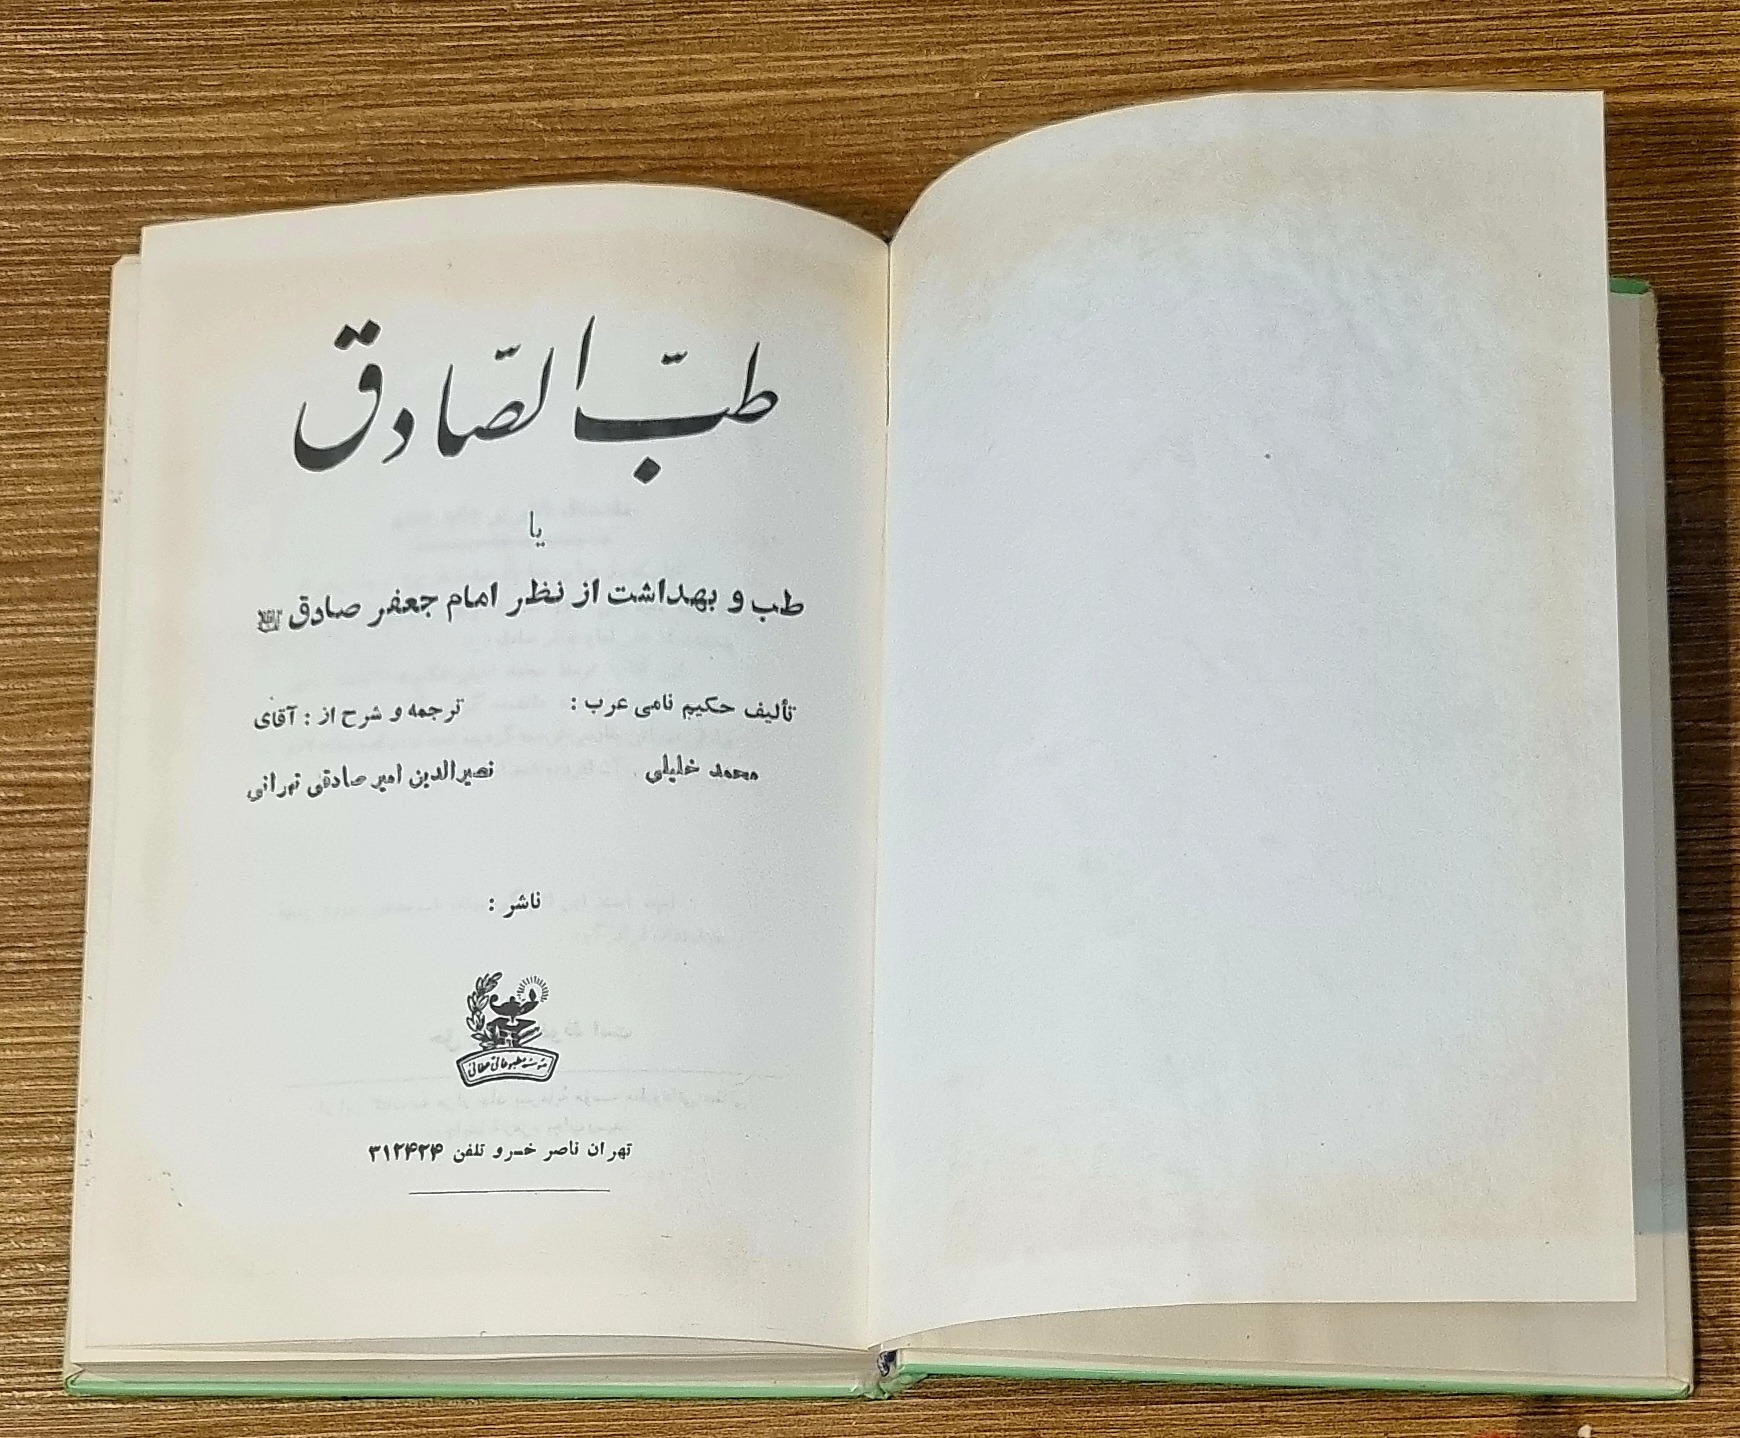 طبّ الصّادق
یا
طب و بهداشت از نظر امام جعفر صادق
تألیف حکیم نامی عرب :
محمد خلیلی
ترجمه و شرح از : آقای
نصیرالدین امیر صادقی تهرانی
ناشر :
مؤسسه مطبوعاتی عطائی
تهران ناصر خسرو تلفن ۳۱۲۴۲۴